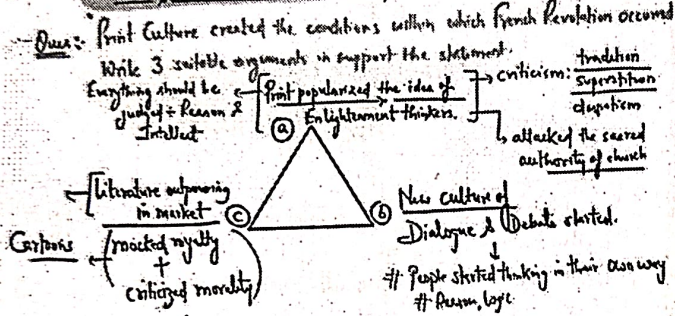 Ques:- "Print Culture created the conditions within which French Revolution occurred
Write 3 suitable arguments in support the statement.
Everything should be
judged ÷ Reason &
Intellect
Print popularized the idea of
Enlightenment thinkers.
criticism: tradition
superstition
despotism
attacked the sacred
authority of church
(a)
(b)
New culture of
Dialogue & Debate started.
# People started thinking in their own way
# Reason, logic
(c)
Literature outpouring
in market
Cartoons
(mocked royalty
+
criticized morality)